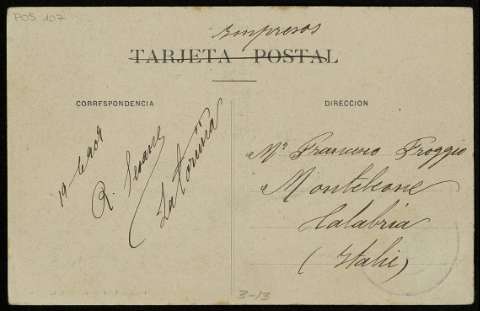 POS 107
Impresos
TARJETA POSTAL
CORRESPONDENCIA
DIRECCION
R.
La Coruña
Mr Francesco Froggio
Monteleone
Calabria
(Italie)
3-13